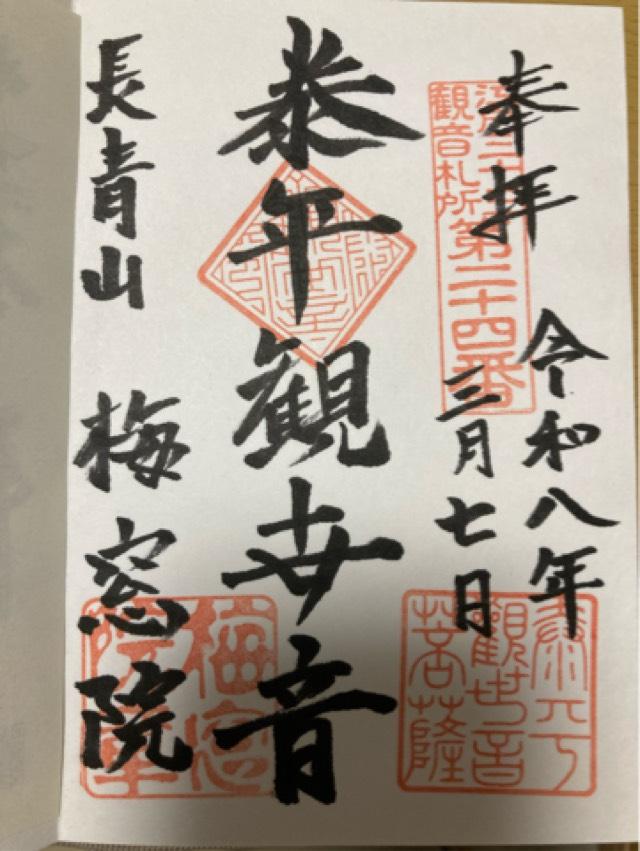 奉拝
令和八年
三月七日
観音札所第二十四番
泰平観世音
長青山 梅窓院
泰平
観世音
菩薩
梅窓
院